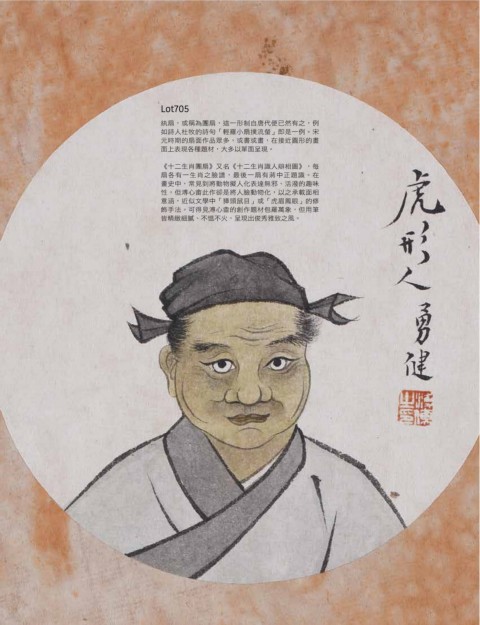 Lot705
紈扇，或稱為團扇，這一形制自唐代便已然有之，例
如詩人杜牧的詩句「輕羅小扇撲流螢」即是一例。宋
元時期的扇面作品眾多，或書或畫，在接近圓形的畫
面上表現各種題材，大多以單面呈現。
《十二生肖團扇》又名《十二生肖識人辯相圖》，每
扇各有一生肖之臉譜，最後一扇有蔣中正題識。在
畫史中，常見到將動物擬人化表達無邪、活潑的趣味
性，但溥心畬此作卻是將人臉動物化，以之承載面相
意涵，近似文學中「獐頭鼠目」或「虎眉鳳眼」的修
飾手法，可得見溥心畬的創作題材包羅萬象，但用筆
皆精緻細膩、不慍不火，呈現出俊秀雅致之風。
虎形人勇健